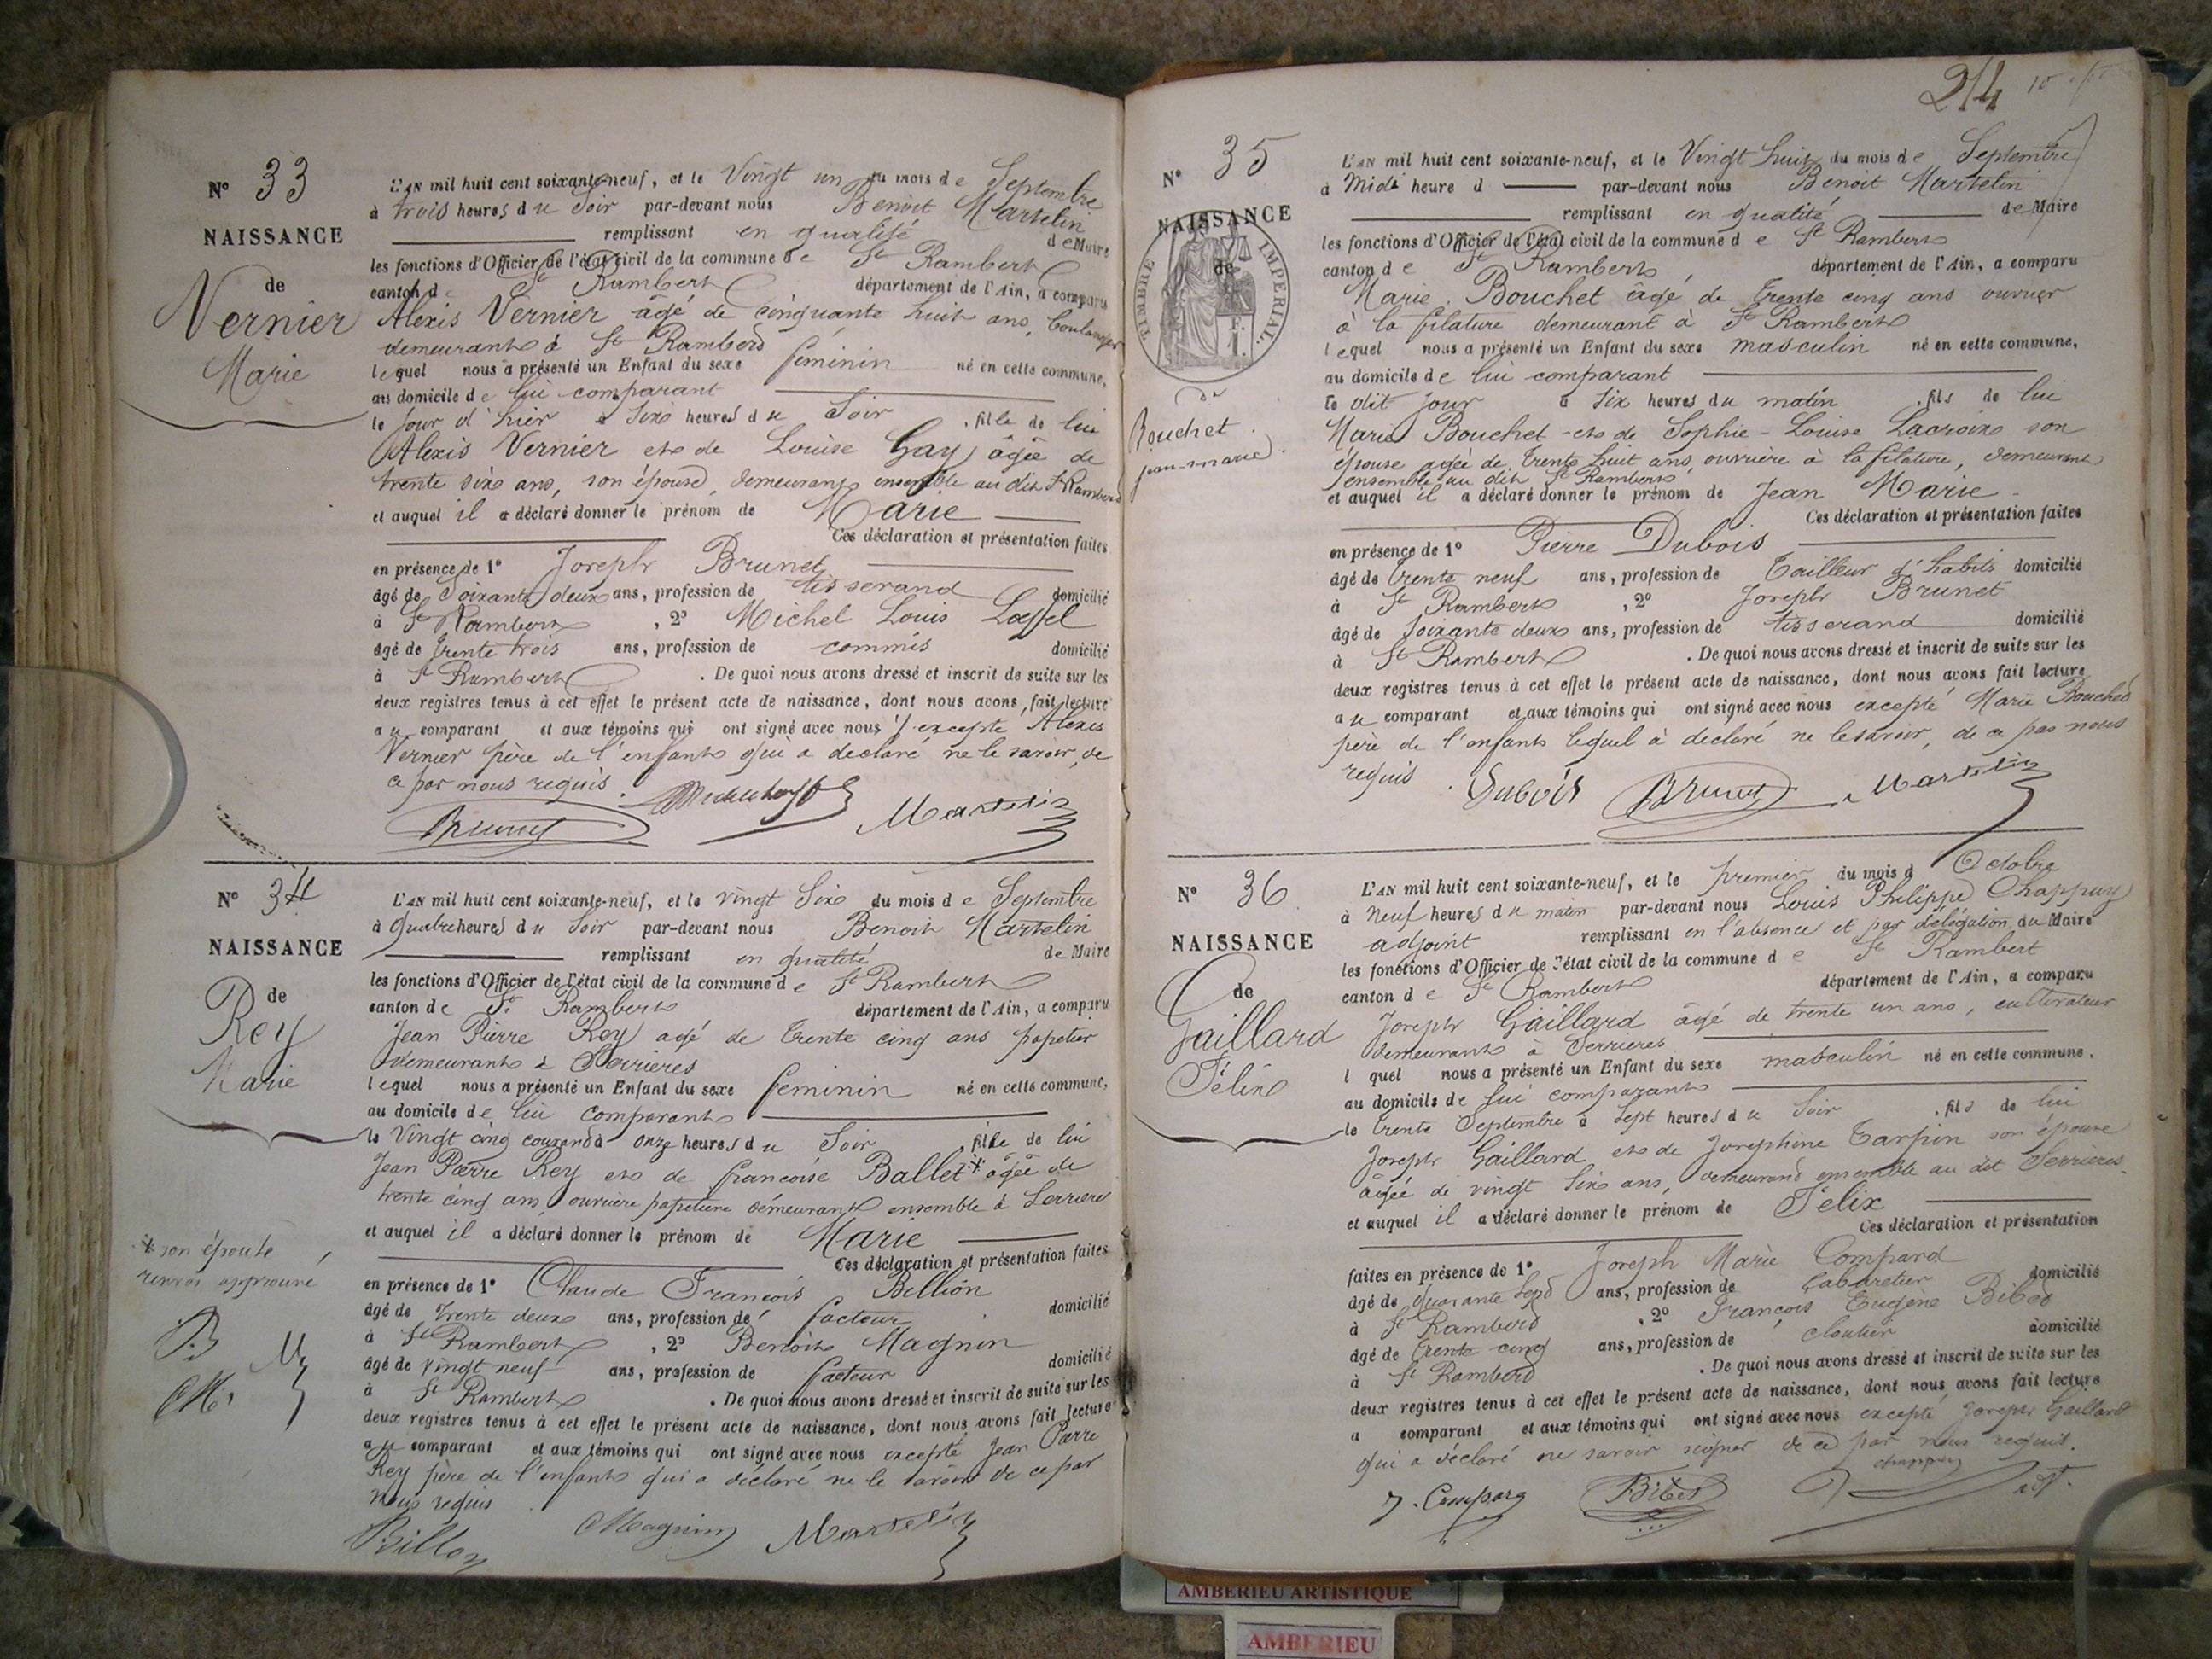 N° 33
NAISSANCE
de
Vernier
Marie
L'AN mil huit cent soixante-neuf, et le Vingt un du mois de Septembre
à trois heures du Soir par-devant nous Benoit Martelin
remplissant en qualité de Maire
les fonctions d'Officier de l'état civil de la commune de St Rambert
canton de St Rambert département de l'Ain, a comparu
Alexis Vernier âgé de cinquante huit ans, boulanger
demeurant à St Rambert
lequel nous a présenté un Enfant du sexe féminin né en cette commune,
au domicile de lui comparant
le jour d'hier à Six heures du Soir, fille de lui
Alexis Vernier et de Louise Gay âgée de
trente six ans, son épouse, demeurant ensemble au dit St Rambert
et auquel il a déclaré donner le prénom de Marie
Ces déclaration et présentation faites
en présence de 1° Joseph Brunet
âgé de Soixante deux ans, profession de tisserand domicilié
à St Rambert, 2° Michel Louis Loeffel
âgé de trente trois ans, profession de commis domicilié
à St Rambert. De quoi nous avons dressé et inscrit de suite sur les
deux registres tenus à cet effet le présent acte de naissance, dont nous avons fait lecture
au comparant et aux témoins qui ont signé avec nous excepté Alexis
Vernier père de l'enfant qui a déclaré ne le savoir, de
ce par nous requis.
Brunet Martelin
N° 34
NAISSANCE
de
Rey
Marie
L'AN mil huit cent soixante-neuf, et le vingt Six du mois de Septembre
à quatre heures du Soir par-devant nous Benoit Martelin
remplissant en qualité de Maire
les fonctions d'Officier de l'état civil de la commune de St Rambert
canton de St Rambert département de l'Ain, a comparu
Jean Pierre Rey agé de trente cinq ans papetier
demeurant à Serrières
lequel nous a présenté un Enfant du sexe féminin né en cette commune,
au domicile de lui comparant
le Vingt cinq courant à onze heures du Soir, fille de lui
Jean Pierre Rey et de francoise Ballet * âgée de
trente cinq ans, ouvrière papetière demeurant ensemble à Serrières
et auquel il a déclaré donner le prénom de Marie
Ces déclaration et présentation faites
* son épouse
renvoi approuvé
B M
CM
en présence de 1° Claude François Billion
âgé de trente deux ans, profession de facteur domicilié
à St Rambert, 2° Benoit Magnin
âgé de vingt neuf ans, profession de facteur domicilié
à St Rambert. De quoi nous avons dressé et inscrit de suite sur les
deux registres tenus à cet effet le présent acte de naissance, dont nous avons fait lecture
au comparant et aux témoins qui ont signé avec nous excepté Jean Pierre
Rey père de l'enfant qui a déclaré ne le savoir de ce par
nous requis
Billon Magnin Martelin
214
N° 35
NAISSANCE
de
TIMBRE IMPERIAL
de
Bouchet
jean-marie
L'AN mil huit cent soixante-neuf, et le Vingt huit du mois de Septembre
à Midi heure d par-devant nous Benoit Martelin
remplissant en qualité de Maire
les fonctions d'Officier de l'état civil de la commune de St Rambert
canton de St Rambert département de l'Ain, a comparu
Marie Bouchet âgé de trente cinq ans ouvrier
à la filature demeurant à St Rambert
lequel nous a présenté un Enfant du sexe masculin né en cette commune,
au domicile de lui comparant
le dit jour à six heures du matin, fils de lui
Marie Bouchet et de Sophie-Louise Lacroix son
épouse agée de trente huit ans, ouvrière à la filature, demeurant
ensemble au dit St Rambert
et auquel il a déclaré donner le prénom de Jean Marie
Ces déclaration et présentation faites
en présence de 1° Pierre Dubois
âgé de trente neuf ans, profession de Tailleur d'habits domicilié
à St Rambert, 2° Joseph Brunet
âgé de soixante deux ans, profession de tisserand domicilié
à St Rambert. De quoi nous avons dressé et inscrit de suite sur les
deux registres tenus à cet effet le présent acte de naissance, dont nous avons fait lecture
au comparant et aux témoins qui ont signé avec nous excepté Marie Bouchet
père de l'enfant lequel à déclaré ne le savoir, de ce par nous
requis.
Dubois Brunet Martelin
N° 36
NAISSANCE
de
Gaillard
Félix
L'AN mil huit cent soixante-neuf, et le premier du mois d Octobre
à Neuf heures du matin par-devant nous Louis Philippe Chappuy
adjoint remplissant en l'absence et par délégation du Maire
les fonctions d'Officier de l'état civil de la commune de St Rambert
canton de St Rambert département de l'Ain, a comparu
Joseph Gaillard âgé de trente un ans, cultivateur
demeurant à Serrières
l quel nous a présenté un Enfant du sexe masculin né en cette commune,
au domicile de lui comparant
le trente Septembre à sept heures du Soir, fils de lui
Joseph Gaillard et de Josephine Tarpin son épouse
âgée de vingt six ans, demeurant ensemble au dit Serrières
et auquel il a déclaré donner le prénom de Félix
Ces déclaration et présentation
faites en présence de 1° Joseph Marie Compard
âgé de quarante sept ans, profession de Cabaretier domicilié
à St Rambert, 2° François Eugène Bibet
âgé de trente cinq ans, profession de cloutier domicilié
à St Rambert. De quoi nous avons dressé et inscrit de suite sur les
deux registres tenus à cet effet le présent acte de naissance, dont nous avons fait lecture
a comparant et aux témoins qui ont signé avec nous excepté Joseph Gaillard
qui a déclaré ne savoir signer de ce par nous requis.
J. Compard Bibet chappuy
AMBERIEU ARTISTIQUE
AMBERIEU